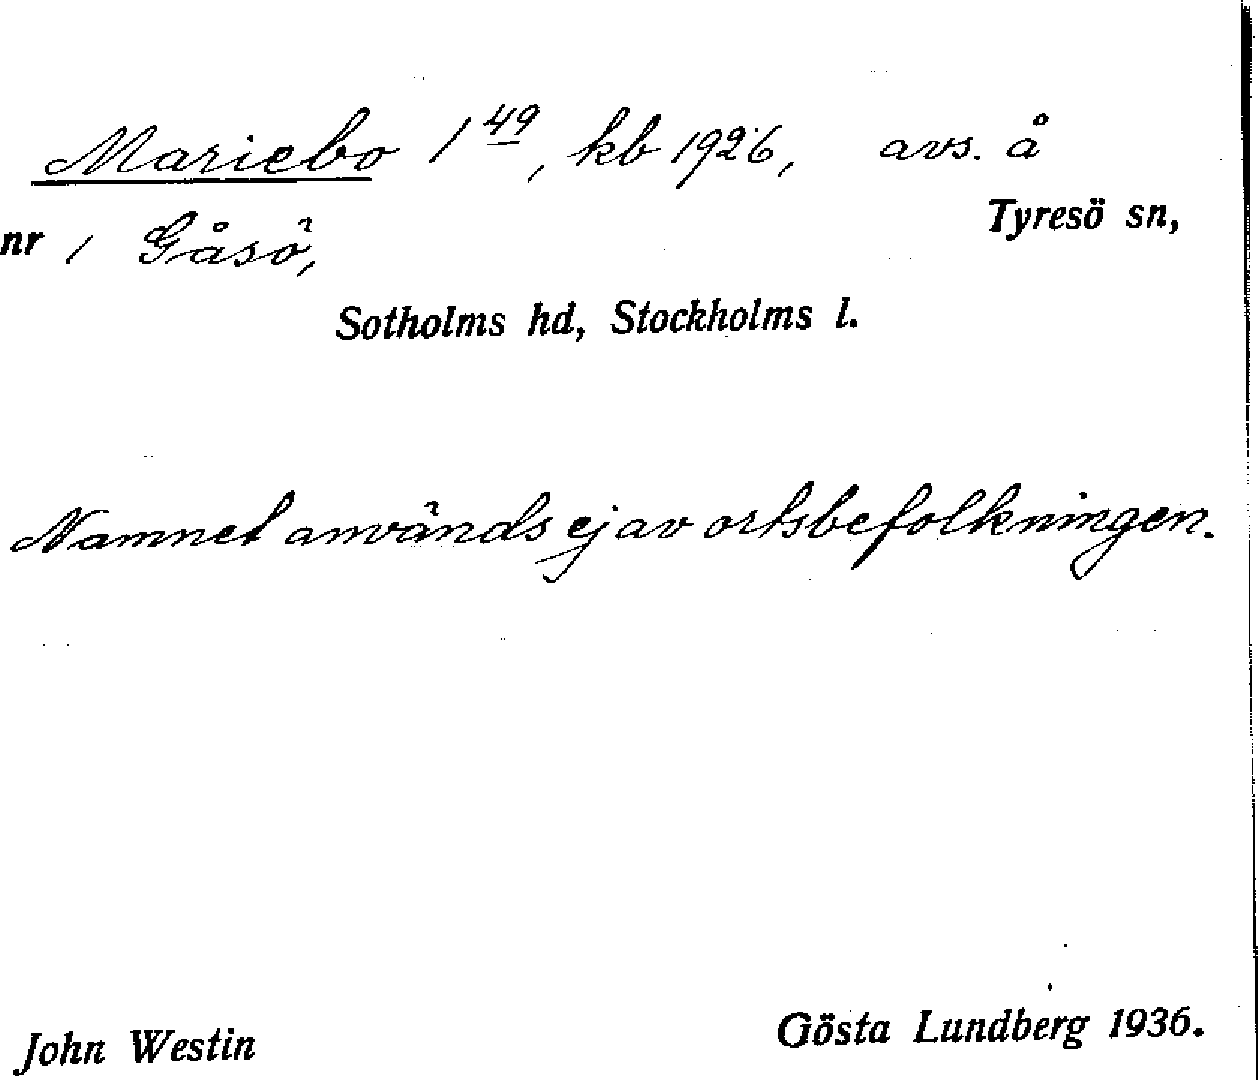 Mariebo 1 49, kb 1926, avs. å
Tyresö sn,
nr 1 Gåsö,
Sotholms hd, Stockholms l.
Namnet används ej av ortsbefolkningen.
John Westin
Gösta Lundberg 1936.